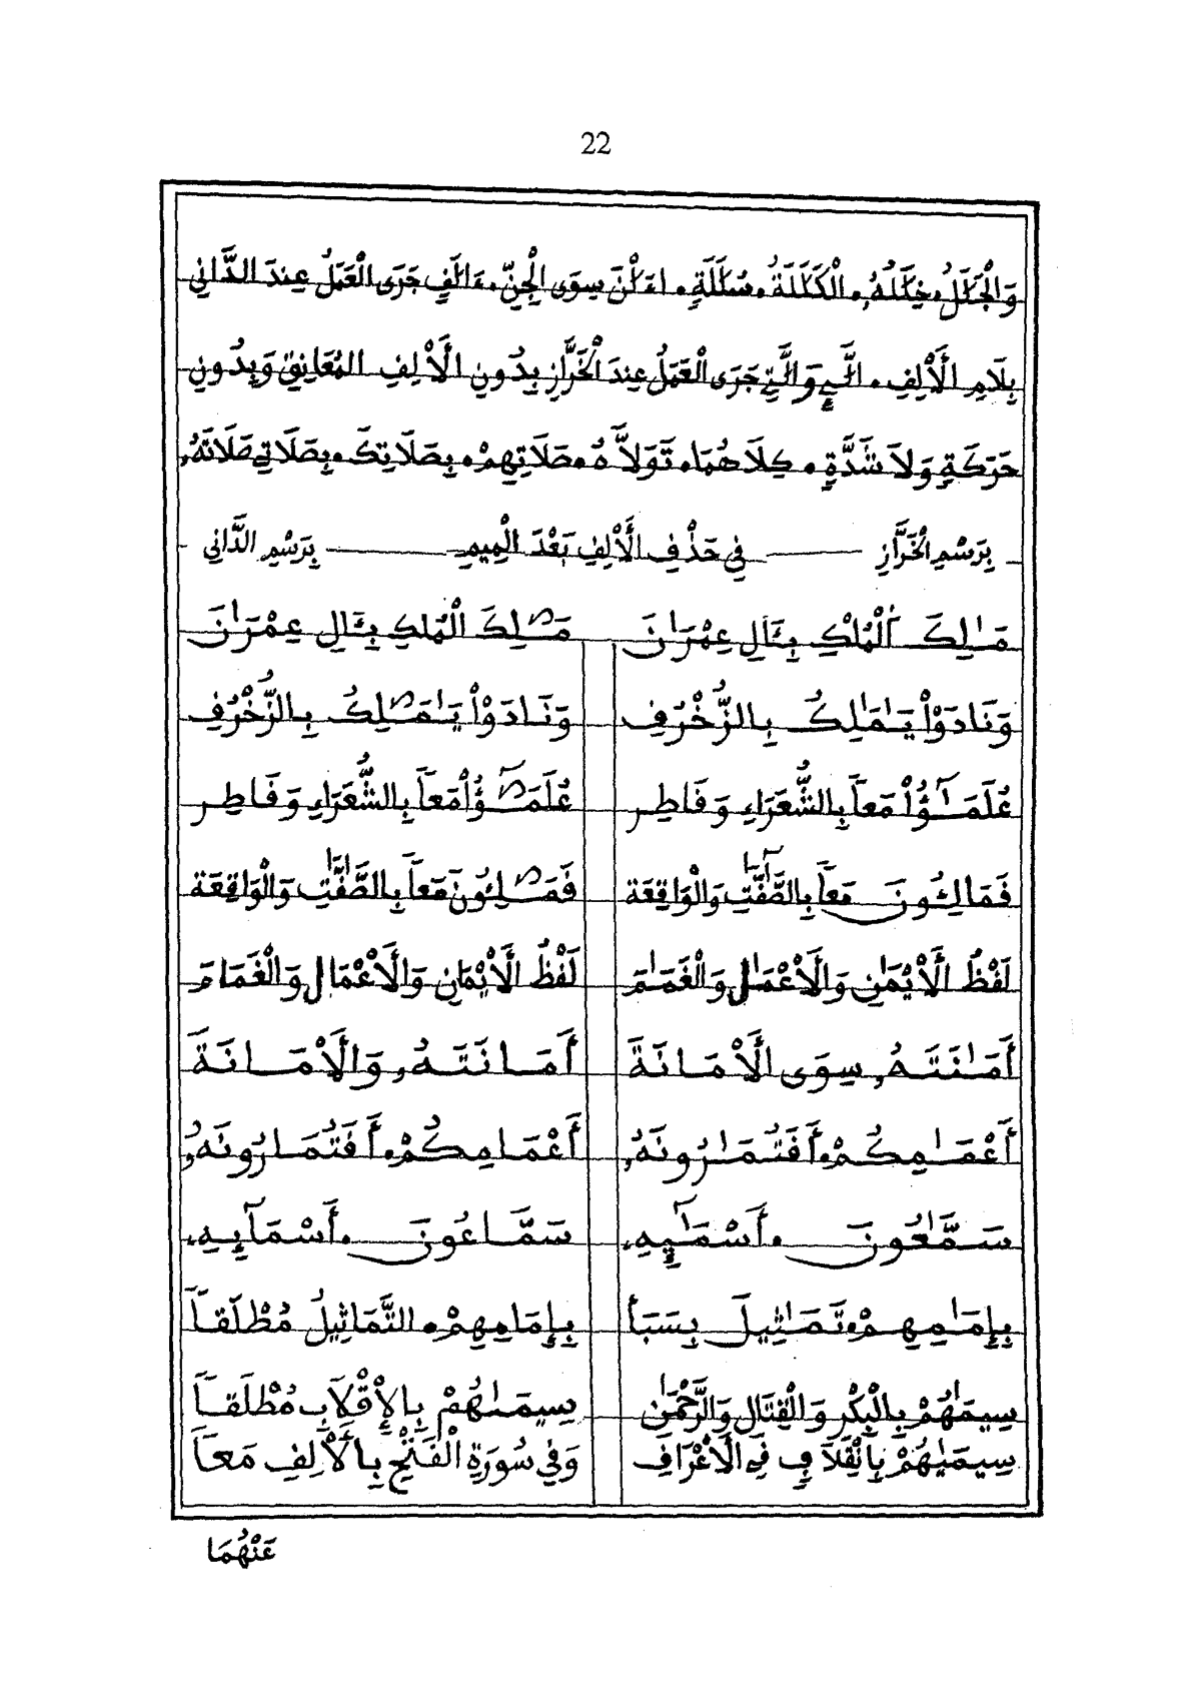 22
وَالْجَلَٰلُ. خِلَٰلَهُۥ. الْكَلَٰلَةُ. سُلَٰلَةٍ. اءَلْٰنَ سِوَى الْجِنِّ. ءَالَٰفٍ جَرَى الْعَمَلُ عِندَ الدَّانِي
بِلَامِ الْأَلِفِ. الَّٰـِٔي وَالَّٰتِي جَرَى الْعَمَلُ عِندَ الْخَرَّازِ بِدُونِ الْأَلِفِ الْمُعَانِقِ وَبِدُونِ
حَرَكَةٍ وَلَا شَدَّةٍ. كِلَاهُمَا. تَوَلَّاهُ. صَلَاتِهِمْ. بِصَلَاتِكَ. بِصَلَاتِي صَلَاتَهُۥ
بِرَسْمِ الْخَرَّازِ ـــ فِي حَذْفِ الْأَلِفِ بَعْدَ الْمِيمِ ـــ بِرَسْمِ الدَّانِي
مَٰلِكَ الْمُلْكِ بِـَٔالِ عِمْرَٰنَ مَٰلِكَ الْمُلْكِ بِـَٔالِ عِمْرَٰنَ
وَنَادَوْاْ يَٰمَٰلِكُ بِالزُّخْرُفِ وَنَادَوْاْ يَٰمَٰلِكُ بِالزُّخْرُفِ
عُلَمَٰٓؤُاْ مَعاً بِالشُّعَرَاءِ وَفَاطِرِ عُلَمَٰٓؤُاْ مَعاً بِالشُّعَرَاءِ وَفَاطِرِ
فَمَالِـُٔونَ مَعاً بِالصَّٰٓفَّٰتِ وَالْوَاقِعَة فَمَٰلِـُٔونَ مَعاً بِالصَّٰٓفَّٰتِ وَالْوَاقِعَة
لَفْظُ الْأَيْمَٰنِ وَالْأَعْمَٰلِ وَالْغَمَٰمَ لَفْظُ الْأَيْمَانِ وَالْأَعْمَالِ وَالْغَمَامَ
أَمَٰنَتَهُۥ سِوَى الْأَمَانَةَ أَمَانَتَهُۥ وَالْأَمَانَةَ
أَعْمَٰمِكُمْ. أَفَتُمَٰرُونَهُۥ أَعْمَامِكُمْ. أَفَتُمَارُونَهُۥ
سَمَّٰعُونَ. أَسْمَٰٓئِهِۦ سَمَّاعُونَ. أَسْمَآئِهِۦ
بِإِمَٰمِهِمْ. تَمَٰثِيلَ بِسَبَأ بِإِمَامِهِمْ. التَّمَاثِيلُ مُطْلَقاً
سِيمَٰهُمْ بِالْبِكْرِ وَالْقِتَالِ وَالرَّحْمَٰنِ سِيمَىٰهُمْ بِالْإِقْلَابِ مُطْلَقاً
سِيمَىٰهُمْ بِانْقِلَابٍ فِي الْأَعْرَافِ وَفِي سُورَةِ الْفَتْحِ بِالْأَلِفِ مَعاً
عَنْهُمَا